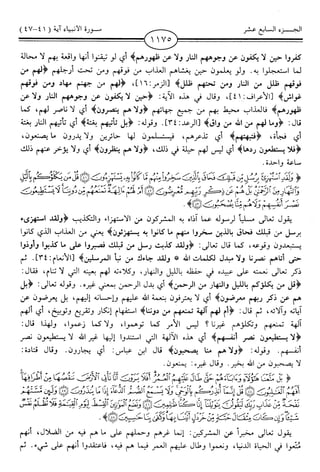 الجـــزء السابع عشر ١١٧٥ سورة الأنبياء آية (٤١-٤٧)
كفروا حين لا يكفون عن وجوههم النار ولا عن ظهورهم﴾ أي لو تيقنوا أنها واقعة بهم لا محالة
لما استعجلوا به. ولو يعلمون حين يغشاهم العذاب من فوقهم ومن تحت أرجلهم ﴿لهم من
فوقهم ظلل من النار ومن تحتهم ظلل﴾ [الزمر:١٦]، ﴿لهم من جهنم مهاد ومن فوقهم
غواش﴾ [الأعراف:٤١]، وقال في هذه الآية: ﴿حين لا يكفون عن وجوههم النار ولا عن
ظهورهم﴾ فالعذاب محيط بهم من جميع جهاتهم ﴿ولا هم ينصرون﴾ أي لا ناصر لهم، كما
قال: ﴿وما لهم من الله من واق﴾ [الرعد:٣٤]. وقوله: ﴿بل تأتيهم بغتة﴾ أي تأتيهم النار بغتة
أي فجأة، ﴿فتبهتهم﴾ أي تذعرهم، فيستسلمون لها حائرين ولا يدرون ما يصنعون،
﴿فلا يستطيعون ردها﴾ أي ليس لهم حيلة في ذلك، ﴿ولا هم ينظرون﴾ أي ولا يؤخر عنهم ذلك
ساعة واحدة.
يقول تعالى مسلياً لرسوله عما آذاه به المشركون من الاستهزاء والتكذيب ﴿ولقد استهزىء
برسل من قبلك فحاق بالذين سخروا منهم ما كانوا به يستهزئون﴾ يعني من العذاب الذي كانوا
يستبعدون وقوعه، كما قال تعالى: ﴿ولقد كذبت رسل من قبلك فصبروا على ما كذبوا وأوذوا
حتى أتاهم نصرنا ولا مبدل لكلمات الله ولقد جاءك من نبأ المرسلين﴾ [الأنعام:٣٤]. ثم
ذكر تعالى نعمته على عبيده في حفظه بالليل والنهار، وكلاءته لهم بعينه التي لا تنام، فقال:
﴿قل من يكلؤكم بالليل والنهار من الرحمن﴾ أي بدل الرحمن بمعنى غيره. وقوله تعالى: ﴿بل
هم عن ذكر ربهم معرضون﴾ أي لا يعترفون بنعمة الله عليهم وإحسانه إليهم، بل يعرضون عن
آياته وآلائه، ثم قال: ﴿أم لهم آلهة تمنعهم من دوننا﴾ استفهام إنكار وتقريع وتوبيخ، أي ألهم
آلهة تمنعهم وتكلؤهم غيرنا؟ ليس الأمر كما توهموا، ولا كما زعموا، ولهذا قال:
﴿لا يستطيعون نصر أنفسهم﴾ أي هذه الآلهة التي استندوا إليها غير الله لا يستطيعون نصر
أنفسهم. وقوله: ﴿ولا هم منا يصحبون﴾ قال ابن عباس: أي يجارون. وقال قتادة:
لا يصحبون من الله بخير. وقال غيره: يمنعون.
يقول تعالى مخبراً عن المشركين: إنما غرهم وحملهم على ما هم فيه من الضلال، أنهم
متّعوا في الحياة الدنيا، ونعموا وطال عليهم العمر فيما هم فيه، فاعتقدوا أنهم على شيء. ثم